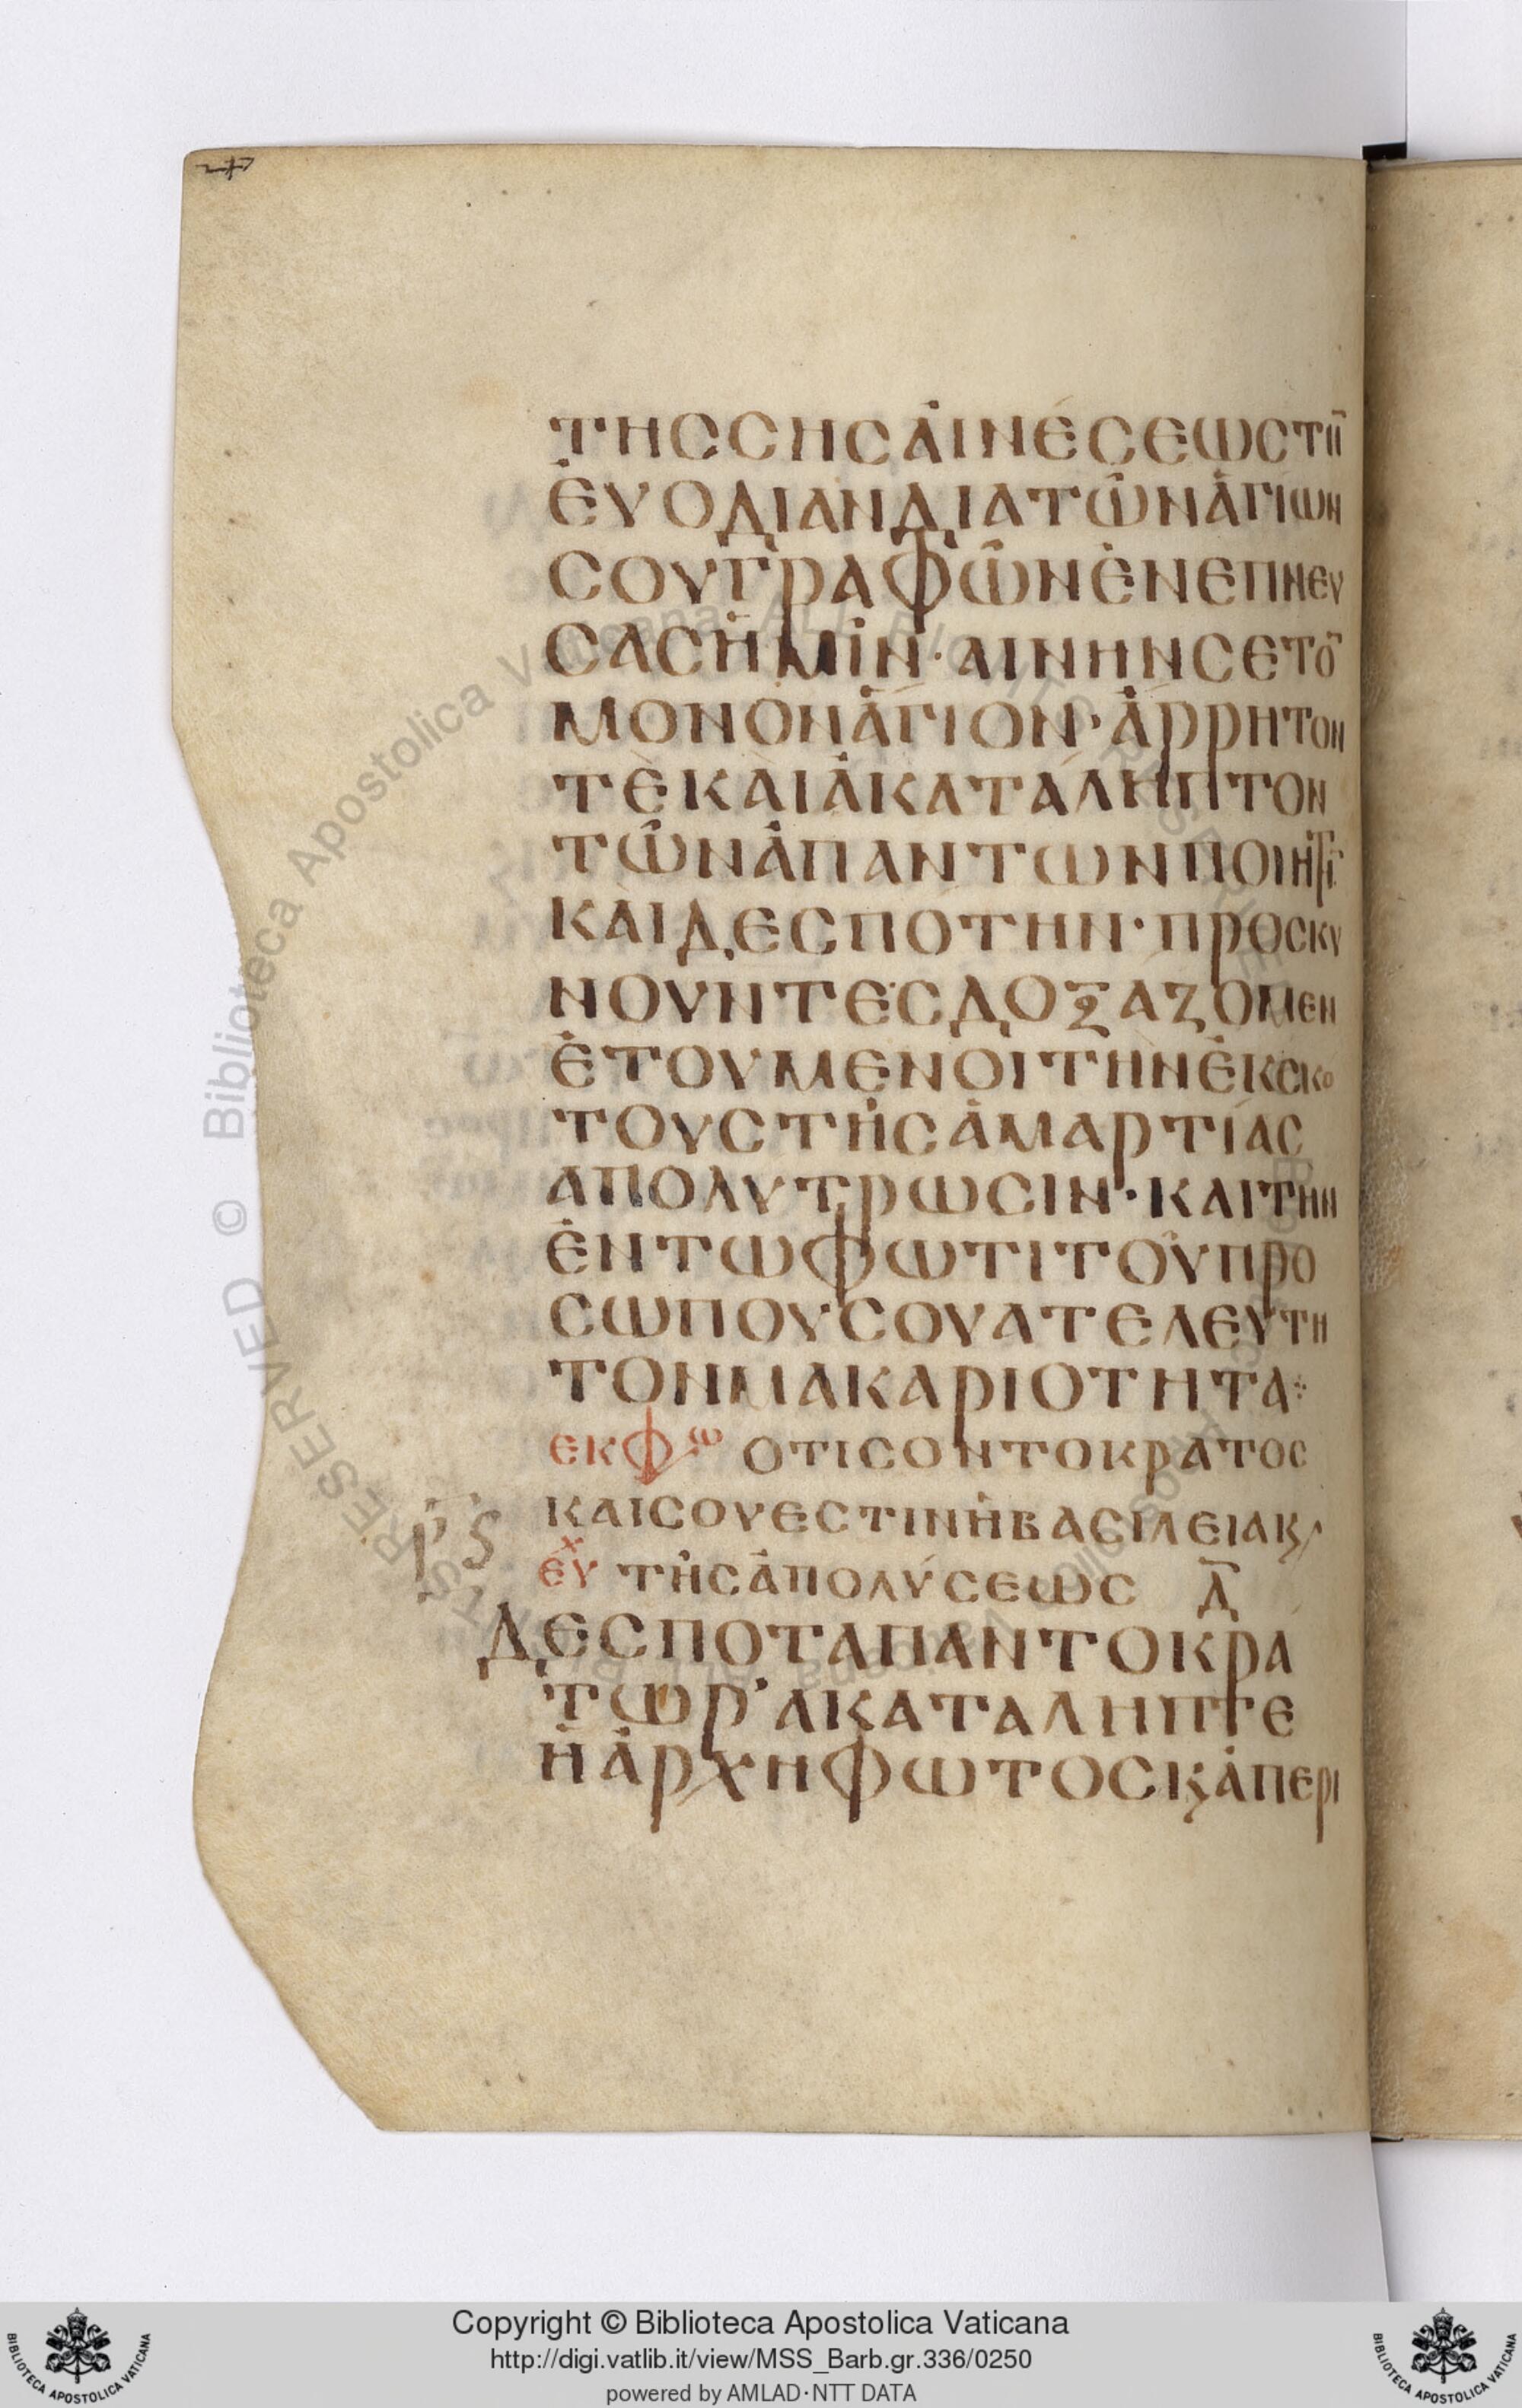 ΤΗϹϹΗϹἈΙΝΈϹΕΩϹΤΗ̅
ἘΥΟΔΙΑΝΔΙΑΤΩ͂ΝἉΓΙΩΝ
ϹΟΥΓΡΑΦΩ͂ΝἘΝΕΠΝΕΥ
ϹΑϹἩΜΙ͂Ν·ΑΙΝΗΝϹΕΤΟ̅
ΜΟΝΟΝἉΓΙΟΝ·ἈΡΡΗΤΟΝ
ΤῈΚΑῚἈΚΑΤΆΛΗΠΤΟΝ
ΤΩ͂ΝἉΠΑΝΤΩΝΠΟΙΗΤῚ
ΚΑῚΔΕϹΠΟΤΗΝ·ΠΡΟϹΚΥ
ΝΟΥΝΤΕϹΔΟΞΑΖΟΜΕΝ
ἘΤΟΥΜΕΝΟΙΤῊΝἘΚϹΚΟ
ΤΟΥϹΤΗ͂ϹἉΜΑΡΤΊΑϹ
ΑΠΟΛΥΤΡΩϹΙΝ·ΚΑΙΤΗΝ
ἘΝΤΩΦΩΤΙΤΟΥ͂ΠΡΟ
ϹΩΠΟΥϹΟΥΑΤΕΛΕΥΤΗ
ΤΟΝΜΑΚΑΡΙΟΤΗΤΑ⁘
ΕΚΦΩ ΟΤΙϹΟΝΤΟΚΡΑΤΟϹ
ΚΑΙϹΟΥΕϹΤΙΝἩΒΑϹΙΛΕΙΑΚ/
ΡϚ
ΕΥΧ ΤΗ͂ϹἈΠΟΛΎϹΕΩϹ Δ̅
ΔΕϹΠΟΤΑΠΑΝΤΟΚΡΑ
ΤΩΡ·ΑΚΑΤΑΛΗΠΤΕ
ἩἈΡΧΗΦΩΤΟϹΚἈΠΕΡΙ
Copyright © Biblioteca Apostolica Vaticana
http://digi.vatlib.it/view/MSS_Barb.gr.336/0250
powered by AMLAD·NTT DATA
BIBLIOTECA APOSTOLICA VATICANA
BIBLIOTECA APOSTOLICA VATICANA